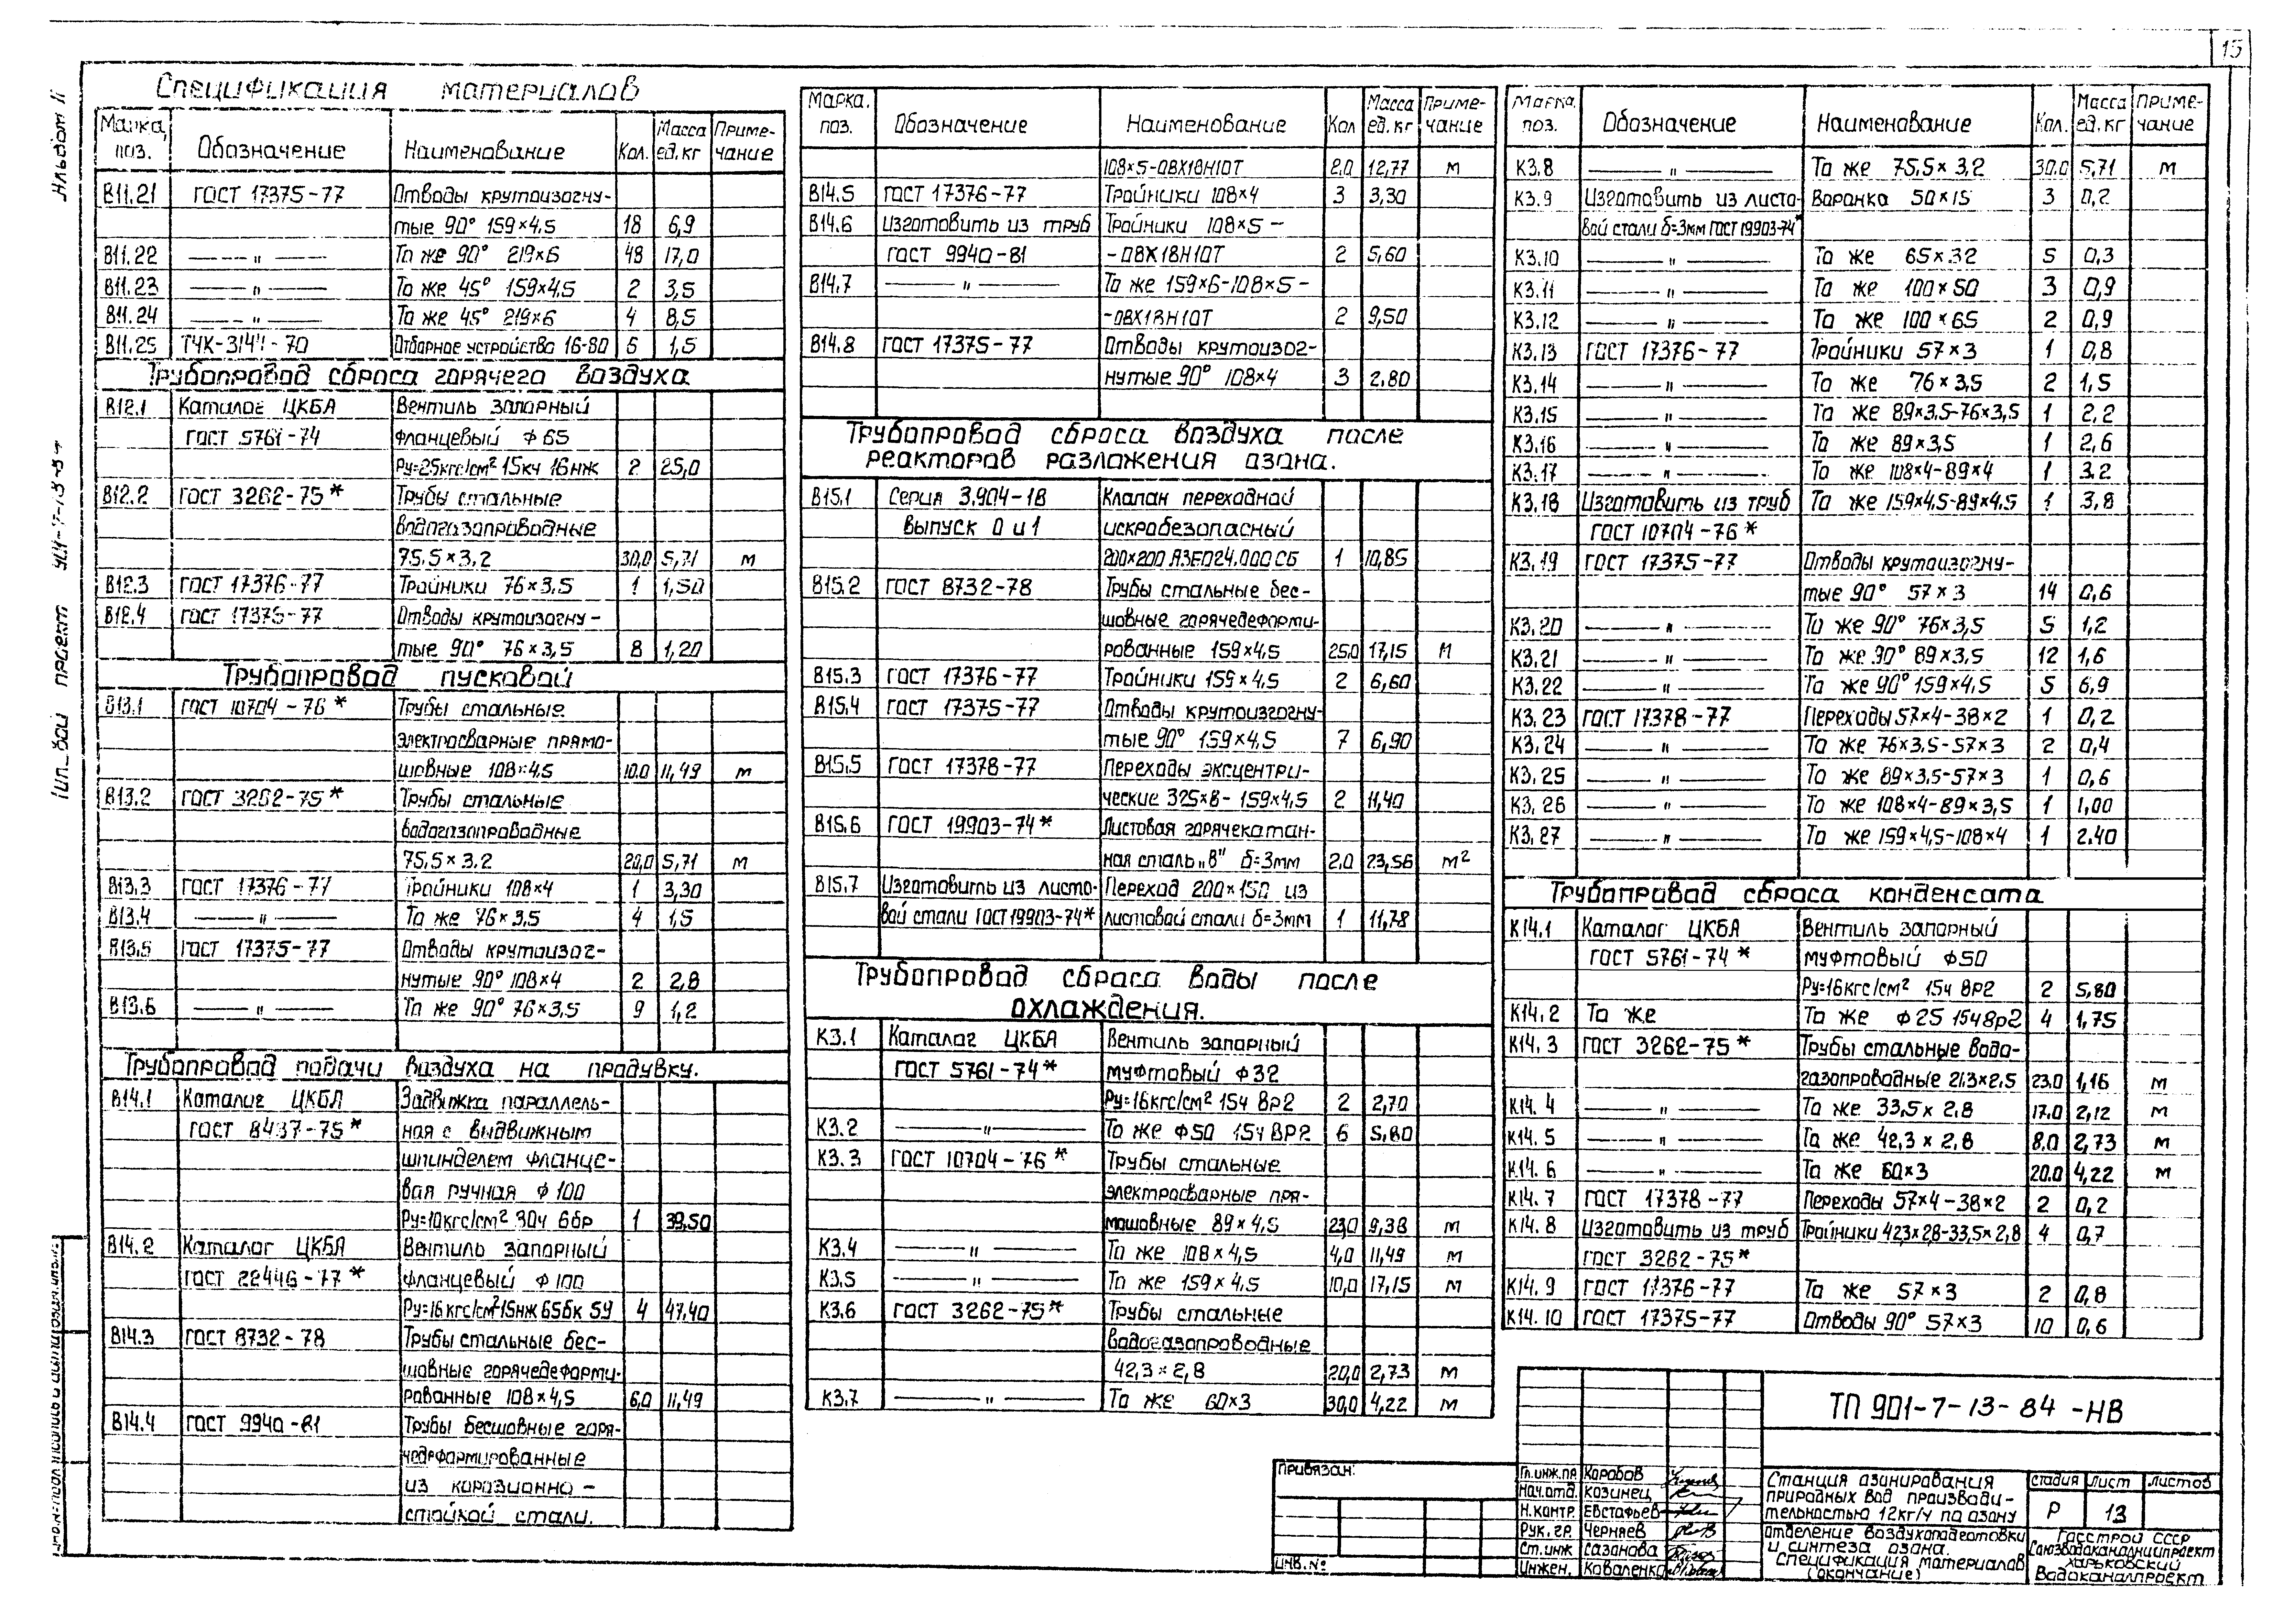 15
Альбом II
Спецификация материалов
Марка, поз. Обозначение Наименование Кол. Масса ед. кг Приме-чание
В11.21 ГОСТ 17375-77 Отводы крутоизогну-
тые 90° 159×4,5 18 6,9
В11.22 —〃— То же 90° 219×6 48 17,0
В11.23 —〃— То же 45° 159×4,5 2 3,5
В11.24 —〃— То же 45° 219×6 4 8,5
В11.25 ТЧК-3144-70 Отборное устройство 16-80 6 1,5
Трубопровод сброса горячего воздуха
В12.1 Каталог ЦКБА Вентиль запорный
ГОСТ 5761-74 фланцевый ф 65
Ру=25кгс/см² 15кч 16нж 2 25,0
В12.2 ГОСТ 3262-75* Трубы стальные
водогазопроводные
75,5×3,2 30,0 5,71 м
В12.3 ГОСТ 17376-77 Тройники 76×3,5 1 1,50
В12.4 ГОСТ 17375-77 Отводы крутоизогну-
тые 90° 76×3,5 8 1,20
Трубопровод пусковой
В13.1 ГОСТ 10704-76* Трубы стальные
электросварные прямо-
шовные 108×4,5 10.0 11,49 м
В13.2 ГОСТ 3262-75* Трубы стальные
водогазопроводные
75,5×3.2 20,0 5,71 м
В13.3 ГОСТ 17376-77 Тройники 108×4 1 3,30
В13.4 —〃— То же 76×3,5 4 1,5
В13.5 ГОСТ 17375-77 Отводы крутоизог-
нутые 90° 108×4 2 2,8
В13.6 —〃— То же 90° 76×3,5 9 1,2
Трубопровод подачи воздуха на продувку.
В14.1 Каталог ЦКБА Задвижка параллель-
ГОСТ 8437-75* ная с выдвижным
шпинделем фланце-
вая ручная ф 100
Ру=10кгс/см² 30ч 6бр 1 39,50
В14.2 Каталог ЦКБА Вентиль запорный
ГОСТ 22446-77* фланцевый ф 100
Ру=16кгс/см² 15нж 65бк 5У 4 47,40
В14.3 ГОСТ 8732-78 Трубы стальные бес-
шовные горячедеформи-
рованные 108×4,5 6,0 11,49
В14.4 ГОСТ 9940-81 Трубы бесшовные горя-
чедеформированные
из корозионно-
стойкой стали.
Марка. поз. Обозначение Наименование Кол Масса ед. кг Приме-чание
108×5-08Х18Н10Т 2,0 12,77 м
В14.5 ГОСТ 17376-77 Тройники 108×4 3 3,30
В14.6 Изготовить из труб Тройники 108×5-
ГОСТ 9940-81 -08Х18Н10Т 2 5,60
В14.7 —〃— То же 159×6-108×5-
-08Х18Н10Т 2 9,50
В14.8 ГОСТ 17375-77 Отводы крутоизог-
нутые 90° 108×4 3 2.80
Трубопровод сброса воздуха после
реакторов разложения озона.
В15.1 Серия 3.904-18 Клапан переходной
выпуск 0 и 1 искробезопасный
200×200 АЗЕ024.000 СБ 1 10,85
В15.2 ГОСТ 8732-78 Трубы стальные бес-
шовные горячедеформи-
рованные 159×4,5 25.0 17,15 м
В15.3 ГОСТ 17376-77 Тройники 159×4,5 2 6,60
В15.4 ГОСТ 17375-77 Отводы крутоизогну-
тые 90° 159×4,5 7 6,90
В15.5 ГОСТ 17378-77 Переходы эксцентри-
ческие 325×8-159×4,5 2 11,40
В15.6 ГОСТ 19903-74* Листовая горячекатан-
ная сталь „В" б=3мм 2.0 23,56 м²
В15.7 Изготовить из листо- Переход 200×150 из
вой стали ГОСТ 19903-74* листовой стали б=3мм 1 11,78
Трубопровод сброса воды после
охлаждения.
К3.1 Каталог ЦКБА Вентиль запорный
ГОСТ 5761-74* муфтовый ф32
Ру=16кгс/см² 15ч 8р2 2 2,70
К3.2 —〃— То же ф50 15ч 8Р2 6 5,80
К3.3 ГОСТ 10704-76* Трубы стальные
электросварные пря-
мошовные 89×4,5 23,0 9,38 м
К3.4 —〃— То же 108×4,5 4,0 11,49 м
К3.5 —〃— То же 159×4,5 10,0 17,15 м
К3.6 ГОСТ 3262-75* Трубы стальные
водогазопроводные
42,3×2,8 20,0 2,73 м
К3.7 —〃— То же 60×3 30,0 4,22 м
Марка. поз. Обозначение Наименование Кол. Масса ед. кг Приме-чание
К3.8 —〃— То же 75,5×3,2 30.0 5,71 м
К3.9 Изготовить из листо- Воронка 50×15 3 0,2
вой стали б=3мм ГОСТ 19903-74*
К3.10 —〃— То же 65×32 5 0,3
К3.11 —〃— То же 100×50 3 0,9
К3.12 —〃— То же 100×65 2 0,9
К3.13 ГОСТ 17376-77 Тройники 57×3 1 0,8
К3.14 —〃— То же 76×3,5 2 1,5
К3.15 —〃— То же 89×3,5-76×3,5 1 2.2
К3.16 —〃— То же 89×3,5 1 2,6
К3.17 —〃— То же 108×4-89×4 1 3.2
К3.18 Изготовить из труб То же 159×4,5-89×4,5 1 3,8
ГОСТ 10704-76*
К3.19 ГОСТ 17375-77 Отводы крутоизогну-
тые 90° 57×3 14 0,6
К3.20 —〃— То же 90° 76×3,5 5 1,2
К3.21 —〃— То же 90° 89×3,5 12 1,6
К3.22 —〃— То же 90° 159×4,5 5 6,9
К3.23 ГОСТ 17378-77 Переходы 57×4-38×2 1 0,2
К3.24 —〃— То же 76×3,5-57×3 2 0,4
К3.25 —〃— То же 89×3,5-57×3 1 0,6
К3.26 —〃— То же 108×4-89×3,5 1 1,00
К3.27 —〃— То же 159×4,5-108×4 1 2.40
Трубопровод сброса конденсата
К14.1 Каталог ЦКБА Вентиль запорный
ГОСТ 5761-74* муфтовый ф50
Ру=16кгс/см² 15ч 8Р2 2 5,80
К14.2 То же То же ф25 15ч8р2 4 1,75
К14.3 ГОСТ 3262-75* Трубы стальные водо-
газопроводные 21,3×2,5 23.0 1,16 м
К14.4 —〃— То же 33,5×2,8 17.0 2,12 м
К14.5 —〃— То же 42,3×2,8 8.0 2,73 м
К14.6 —〃— То же 60×3 20.0 4,22 м
К14.7 ГОСТ 17378-77 Переходы 57×4-38×2 2 0,2
К14.8 Изготовить из труб Тройники 42,3×2,8-33,5×2,8 4 0,7
ГОСТ 3262-75*
К14.9 ГОСТ 17376-77 То же 57×3 2 0,8
К14.10 ГОСТ 17375-77 Отводы 90° 57×3 10 0,6
ТП 901-7-13-84-НВ
Привязан:
ИНВ.№
Гл.инж.пр Коробов
Нач.отд. Козинец
Н.контр. Евстафьев
Рук.гр. Черняев
Ст.инж Сазанова
Инжен. Коваленко
Станция озонирования
природных вод производи-
тельностью 12кг/ч по озону
Отделение воздухоподготовки
и синтеза озона.
Спецификация материалов
(окончание)
стадия Лист Листов
Р 13
Госстрой СССР
Союзводоканалниипроект
Харьковский
Водоканалпроект